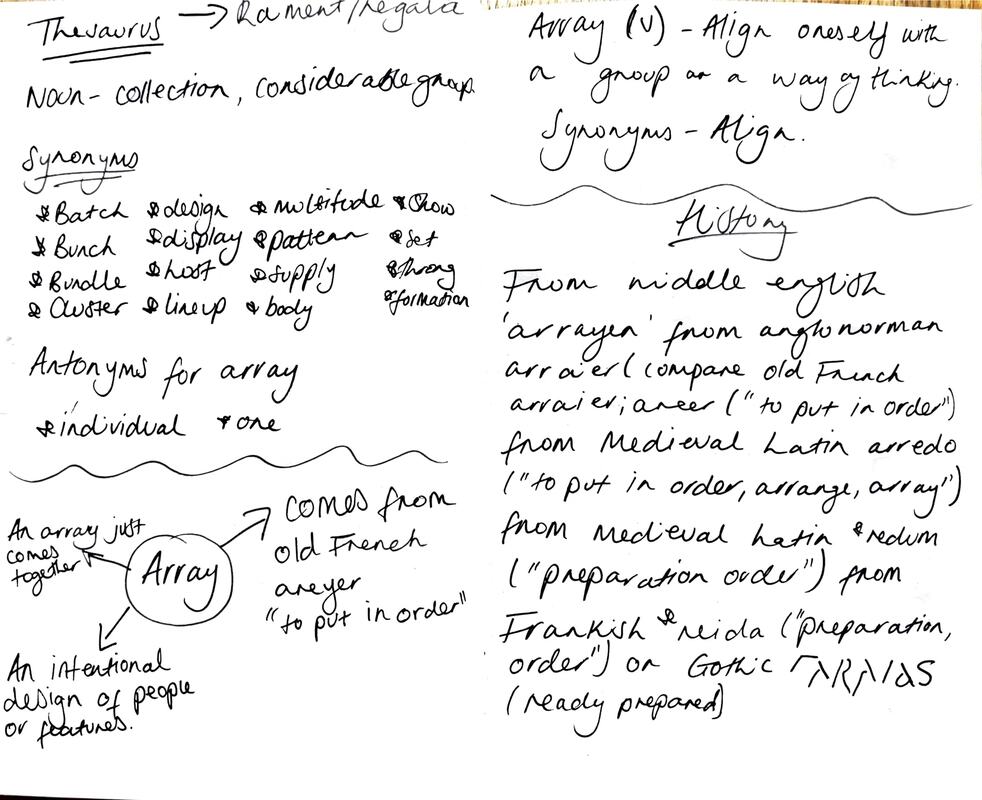 Thesaurus → Raiment/regala
Noun - collection, considerable group.
Synonyms
* Batch * design * multitude * Show
* Bunch * display * pattern * Set
* Bundle * host * supply * throng
* Cluster * lineup * body * formation
Antonyms for array
* individual * one
An array just
comes
together
Array
comes from
old French
areyer
"to put in order"
An intentional
design of people
or features.
Array (v) - Align oneself with
a group or a way of thinking.
Synonyms - Align.
History
From middle english
'arrayen' from anglonorman
arraier (compare old French
arraier; areer ("to put in order")
from Medieval Latin arredo
("to put in order, arrange, array")
from Medieval Latin *redum
("preparation order") from
Frankish *reida ("preparation,
order") or Gothic
(ready prepared)